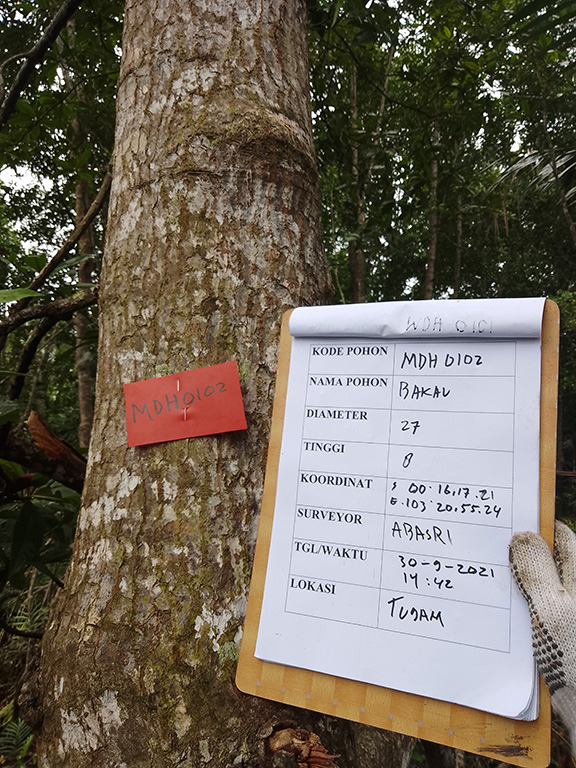 WDH 0101
MDH0102
KODE POHON MDH 0102
NAMA POHON BAKAU
DIAMETER 27
TINGGI 8
KOORDINAT S 00.16.17.21
E.103.20.55.24
SURVEYOR ABASRI
TGL/WAKTU 30-9-2021
14:42
LOKASI